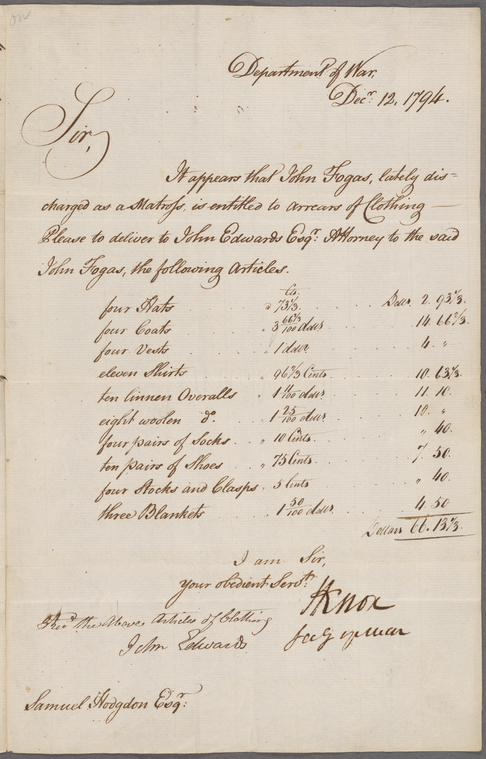 Department of War,
Decr. 12, 1794.
Sir,
It appears that John Fogas, lately dis=
charged as a Matross, is entitled to arrears of Clothing —
Please to deliver to John Edwards Esqr. Attorney to the said
John Fogas, the following Articles.
Cts.
four Hats " 73 1/3 Dollrs. 2. 93 1/3.
four Coats 3 66 2/3/100 dollrs 14. 66 2/3.
four Vests " 1 dollr 4. "
eleven Shirts " 96 2/3 Cents 10. 63 1/3.
ten linnen Overalls " 1 11/100 dollrs 11. 10.
eight woolen do. " 1 25/100 dollrs 10. "
four pairs of Socks " 10 Cents " 40.
ten pairs of Shoes " 75 Cents 7. 50.
four Stocks and Clasps . 5 Cents " 40.
three Blankets " 1 50/100 dollrs 4. 50
Dollars 66. 13 1/3.
I am Sir,
Your obedient Servt.
HKnox
Secy of war
Recd. the Above Articles of Clothing
John Edwards
Samuel Hodgdon Esqr.